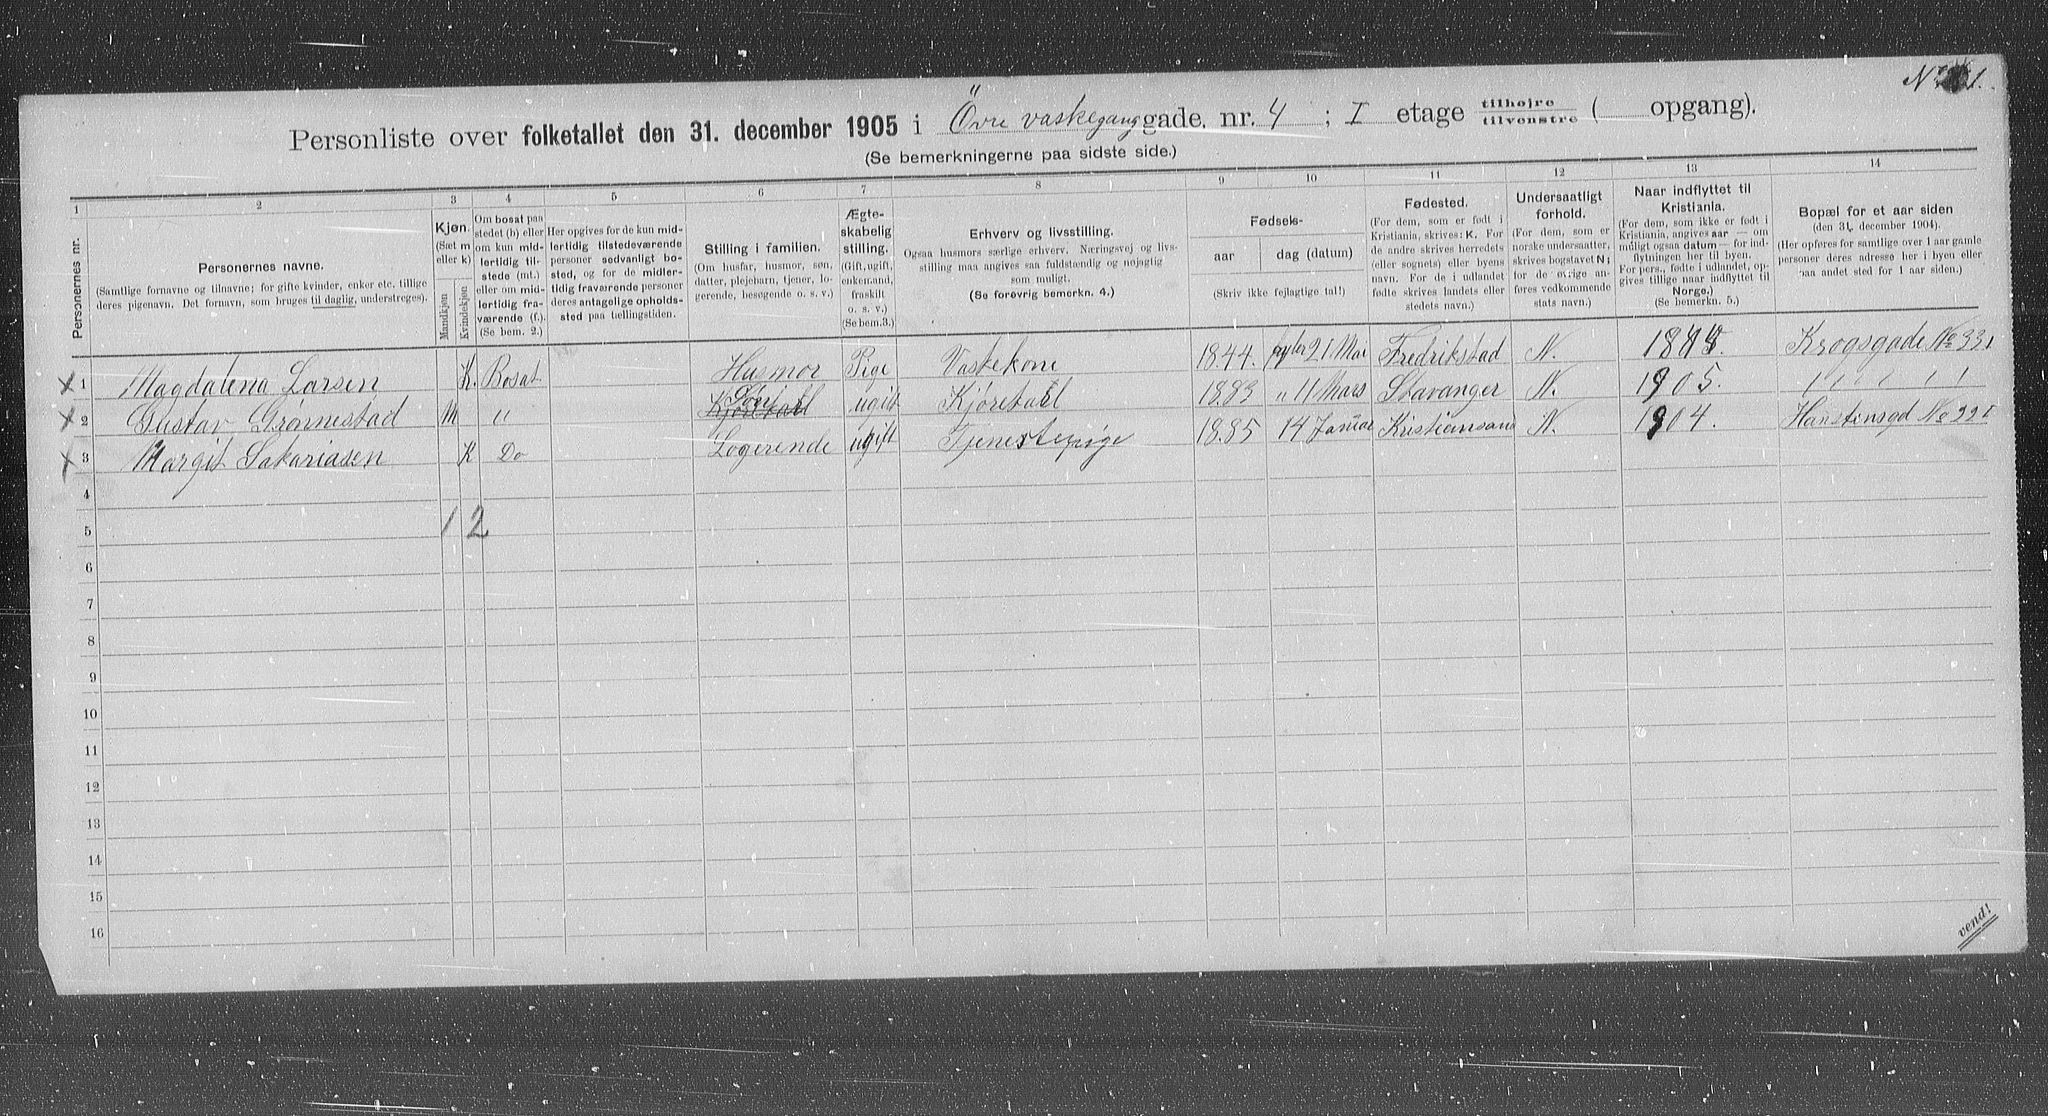 No 1.
Personliste over folketallet den 31. december 1905 i Övre vaskegang gade, nr. 4 ; I etage tilhøjre tilvenstre ( opgang).
(Se bemerkningerne paa sidste side.)
1 2 3 4 5 6 7 8 9 10 11 12 13 14
Personernes nr.
Personernes navne.
(Samtlige fornavne og tilnavne; for gifte kvinder, enker etc. tillige
deres pigenavn. Det fornavn, som bruges til daglig, understreges).
Kjøn.
(Sæt m
eller k)
Mandkjøn
Kvindekjøn
Om bosat paa
stedet (b) eller
om kun mid-
lertidig til-
stede (mt.)
eller om mid-
lertidig fra-
værende (f.).
(Se bem. 2.)
Her opgives for de kun mid-
lertidig tilstedeværende
personer sedvanligt bo-
sted, og for de midler-
tidig fraværende personer
deres antagelige opholds-
sted paa tællingstiden.
Stilling i familien.
(Om husfar, husmor, søn,
datter, plejebarn, tjener, lo-
gerende, besøgende o. s. v.)
Ægte-
skabelig
stilling.
(Gift, ugift,
enkemand,
fraskilt
o. s. v.)
(Se bem.3.)
Erhverv og livsstilling.
Ogsaa husmors særlige erhverv. Næringsvej og livs-
stilling maa angives saa fuldstændig og nøjagtig
som muligt.
(Se forøvrig bemerkn. 4.)
Fødsels-
aar
dag (datum)
(Skriv ikke fejlagtige tal!)
Fødested.
(For dem, som er født i
Kristiania, skrives: K. For
de andre skrives herredets
(eller sognets) eller byens
navn. For de i udlandet
fødte skrives landets eller
stedets navn.)
Undersaatligt
forhold.
(For dem, som er
norske undersaatter,
skrives bogstavet N;
for de øvrige an-
føres vedkommende
stats navn.)
Naar indflyttet til
Kristiania.
(For dem, som ikke er født i
Kristiania, angives aar — om
muligt ogsaa datum — for ind-
flytningen her til byen.
For pers., fødte i udlandet, op-
gives tillige naar indflyttet til
Norge.)
(Se bemerkn. 5.)
Bopæl for et aar siden
(den 31. december 1904).
(Her opføres for samtlige over 1 aar gamle
personer deres adresse her i byen eller
paa andet sted for 1 aar siden.)
x 1 Magdalena Larsen K. Bosat Husmor Pige Vaskekone 1844. 21 Mai Fredrikstad N. Krogsgade No 33 I
x 2 Gustav Grønnestad M " ugift Kjørekarl 1883 " 11 Mars Stavanger N. 1905. " " " " "
x 3 Margit Sakariasen K Do Logerende ugift Tjenestepige 1885 14 Januar Kristiansand N. 1904. Hanstensgd No 22 I
4
5 1 2
6
7
8
9
10
11
12
13
14
15
16
vend!